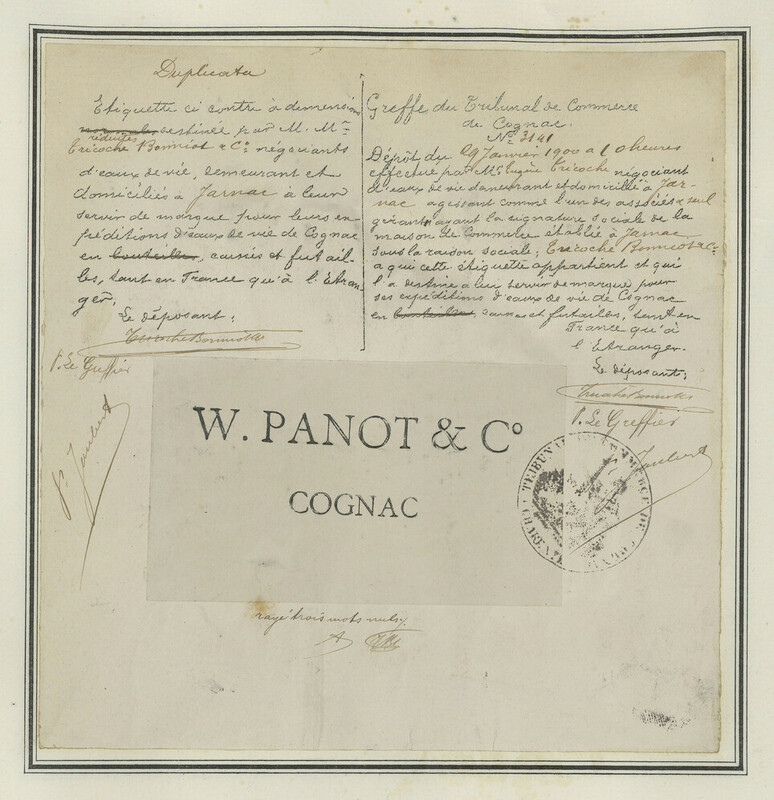 Duplicata
Etiquette ci contre à dimension
réduites
normale destinée par M. Mrs
Tricoche Bonniot & Co négociants
d'eaux de vie, demeurant et
domiciliés à Jarnac à leur
servir de marque pour leurs ex-
péditions d'eaux de vie de Cognac
en bouteilles, caisses et futail-
les, tant en France qu'à l'Etran
ger.
Le déposant:
Tricoche Bonniot & Co
P. Le Greffier
P. Jaulert
Greffe du Tribunal de Commerce
de Cognac.
No 3141
Dépôt du 29 Janvier 1900 à 10 heures
effectué par Mr Eugène Tricoche négociant
d'eaux de vie demeurant et domicilié à Jar-
nac agissant comme l'un des associés & seul
gérant ayant la signature sociale de la
maison de Commerce établie à Jarnac
sous la raison sociale; Tricoche Bonniot & Co
à qui cette étiquette appartient et qui
l'a destiné à leur servir de marque pour
ses expéditions d'eaux de vie de Cognac
en bouteilles, caisses et futailles, tant en
France qu'à
l'Etranger.
Le déposant:
Tricoche Bonniot & Co
P. Le Greffier
Jaulert
W. PANOT & Co
COGNAC
TRIBUNAL DE COMMERCE DE COGNAC
CHARENTE
rayé trois mots nuls